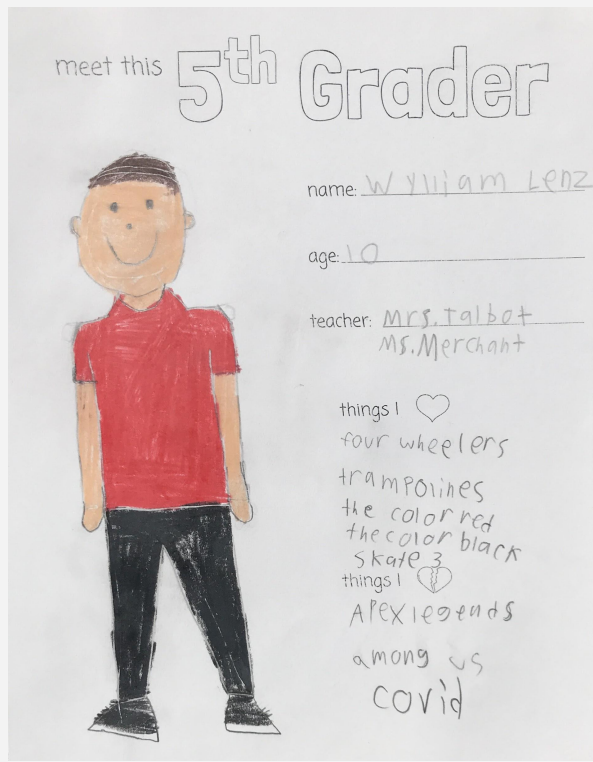 meet this 5th Grader
name: Wylliam Lenz
age: 10
teacher: Mrs. Talbot
Ms. Merchant
things I
four wheelers
trampolines
the color red
the color black
skate 3
things I
Apex legends
among us
covid